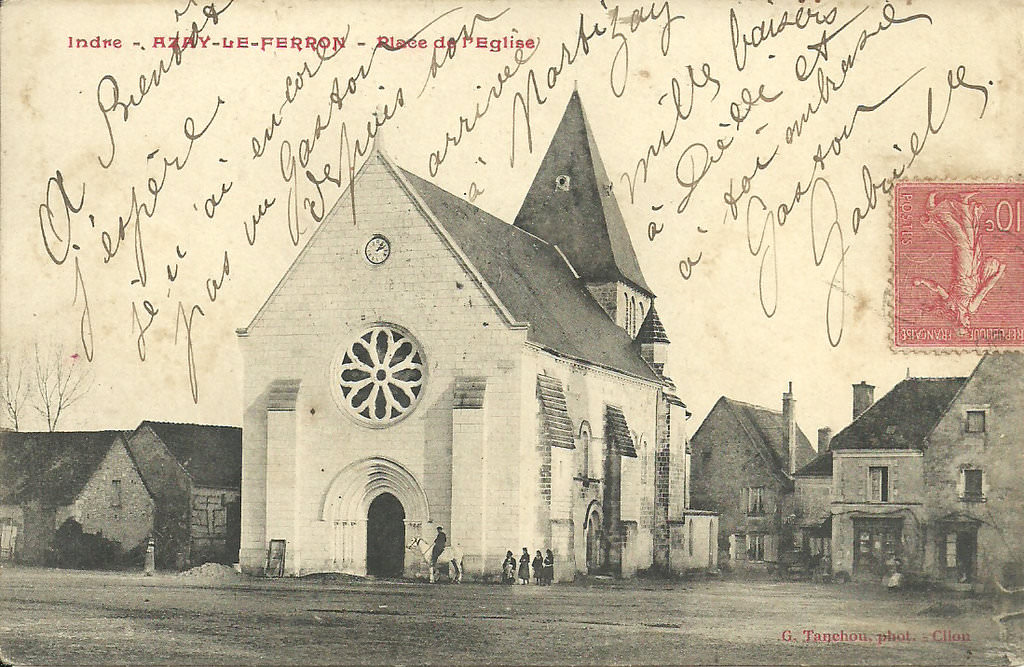 Indre - AZAY-LE-FERRON - Place de l'Eglise
A Bientôt
j'espère
je n'ai encore
pas vu Gaston
depuis son
arrivée
à Martizay
mille baisers
à Dédé et
à toi embrasse
Gaston
Gabrielle.
10c
POSTES
REPUBLIQUE FRANÇAISE
G. Tanchou, phot. - Clion